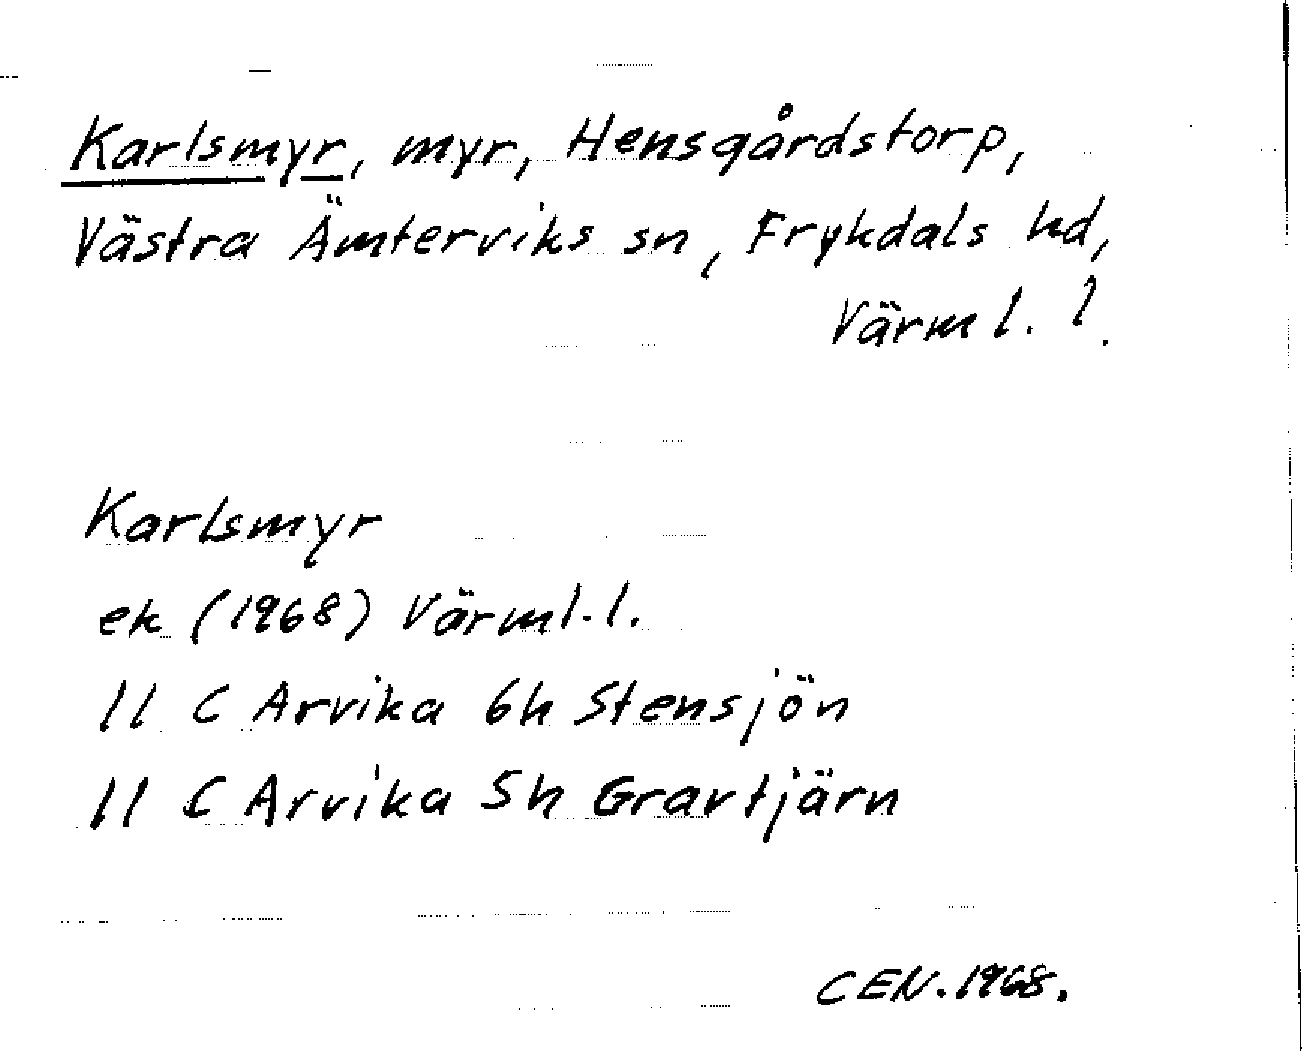 Karlsmyr, myr, Hensgårdstorp,
Västra Ämterviks sn, Frykdals hd,
Värml. l.
Karlsmyr
ek (1968) Värml. l.
11 C Arvika 6h Stensjön
11 C Arvika 5h Gravtjärn
CEN. 1968.